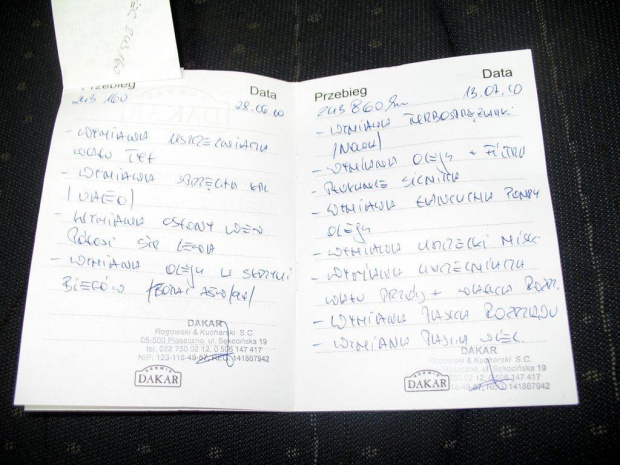 243 160
Przebieg Data
243 160 28.06.10
- WYMIANA USZCZELNIACZA
WAŁU TYŁ
- WYMIANA SPRZĘGŁA KPL
/VALEO/
- WYMIANA OSŁONY WEW
PÓŁOSI STR LEWA
- WYMIANA OLEJU W SKRZYNI
BIEGÓW
DAKAR
Rogowski & Kucharski S.C.
05-500 Piaseczno, ul. Sękocińska 19
tel. 022 750 02 12, 0 506 147 417
NIP: 123-118-49-57, REG. 141867942
SERWIS
DAKAR
Przebieg Data
243 860 km 13.07.10
- WYMIANA TURBOSPRĘŻARKI
/NOWA/
- WYMIANA OLEJU + FILTRU
- PŁUKANIE SILNIKA
- WYMIANA ŁAŃCUCHA POMPY
OLEJU
- WYMIANA USZCZELKI MISKI
- WYMIANA USZCZELNIACZA
WAŁU PRZÓD + WAŁKA ROZRZ.
- WYMIANA PASKA ROZRZĄDU
- WYMIANA PASKA WIEL.
DAKAR
Rogowski & Kucharski S.C.
Piaseczno, ul. Sękocińska 19
02 12, 0 506 147 417
141867942
SERWIS
DAKAR